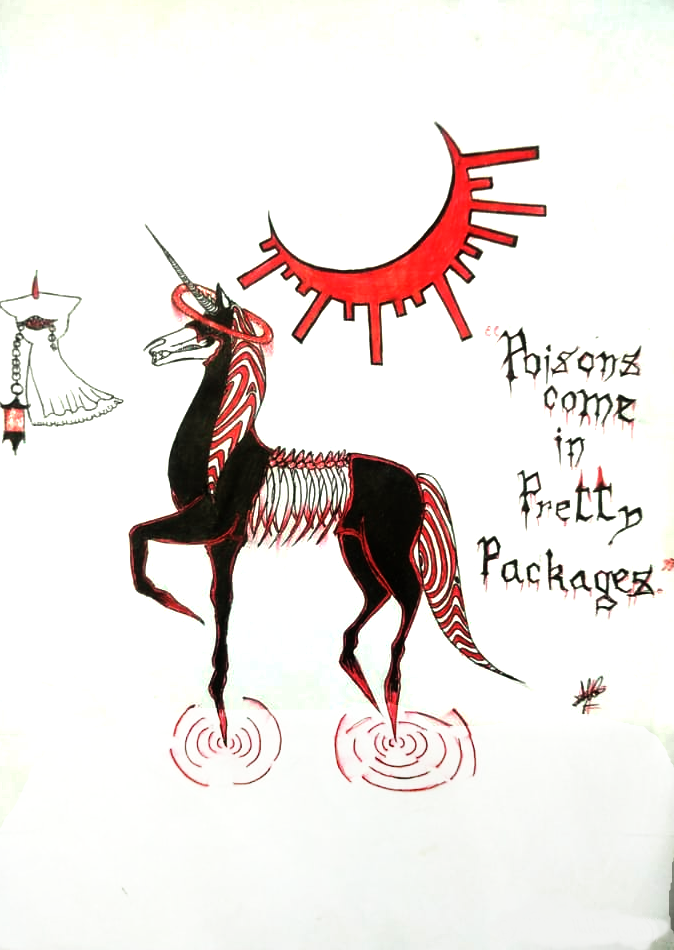 "Poisons
come
in
Pretty
Packages."